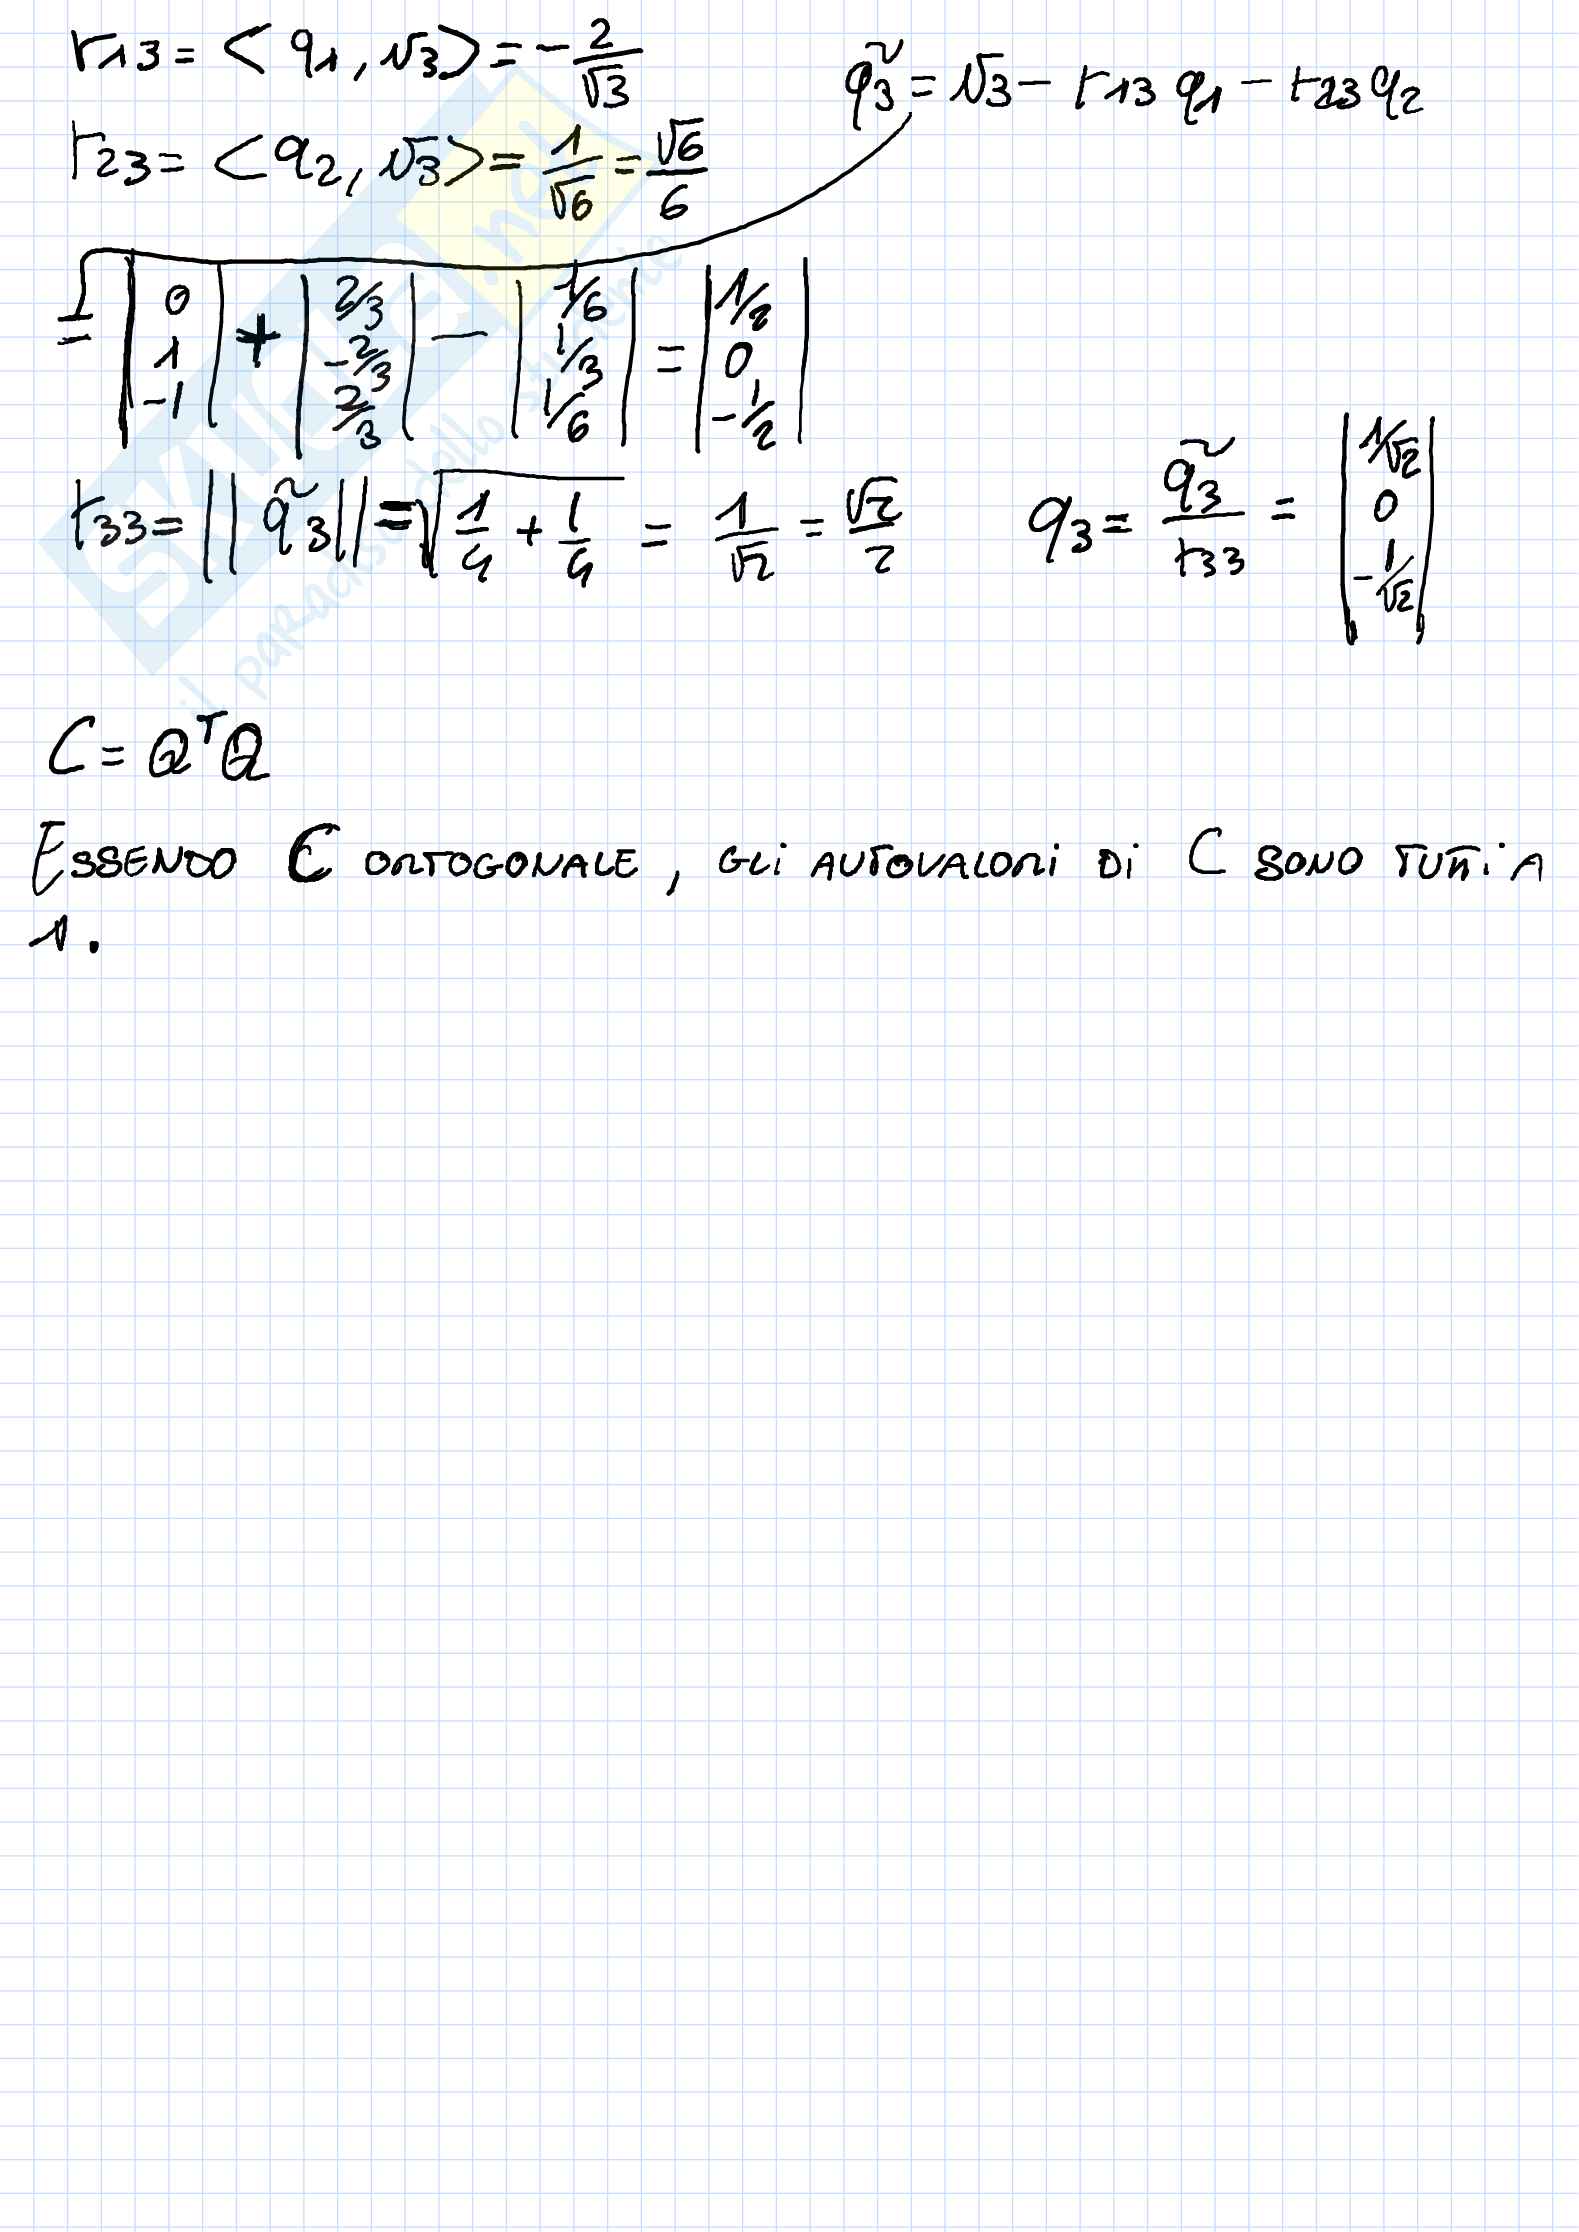 r13 = < q1, v3 > = - 2/√3
q̃3 = v3 - r13 q1 - r23 q2
r23 = < q2, v3 > = 1/√6 = √6/6
= | 0 1 -1 | + | 2/3 -2/3 2/3 | - | 1/6 1/3 1/6 | = | 1/2 0 -1/2 |
r33 = || q̃3 || = √(1/4 + 1/4) = 1/√2 = √2/2
q3 = q̃3/r33 = | 1/√2 0 -1/√2 |
C = QᵀQ
ESSENDO C ORTOGONALE, GLI AUTOVALORI DI C SONO TUTTI A
1.
SKUOLA.net
il paradiso dello studente